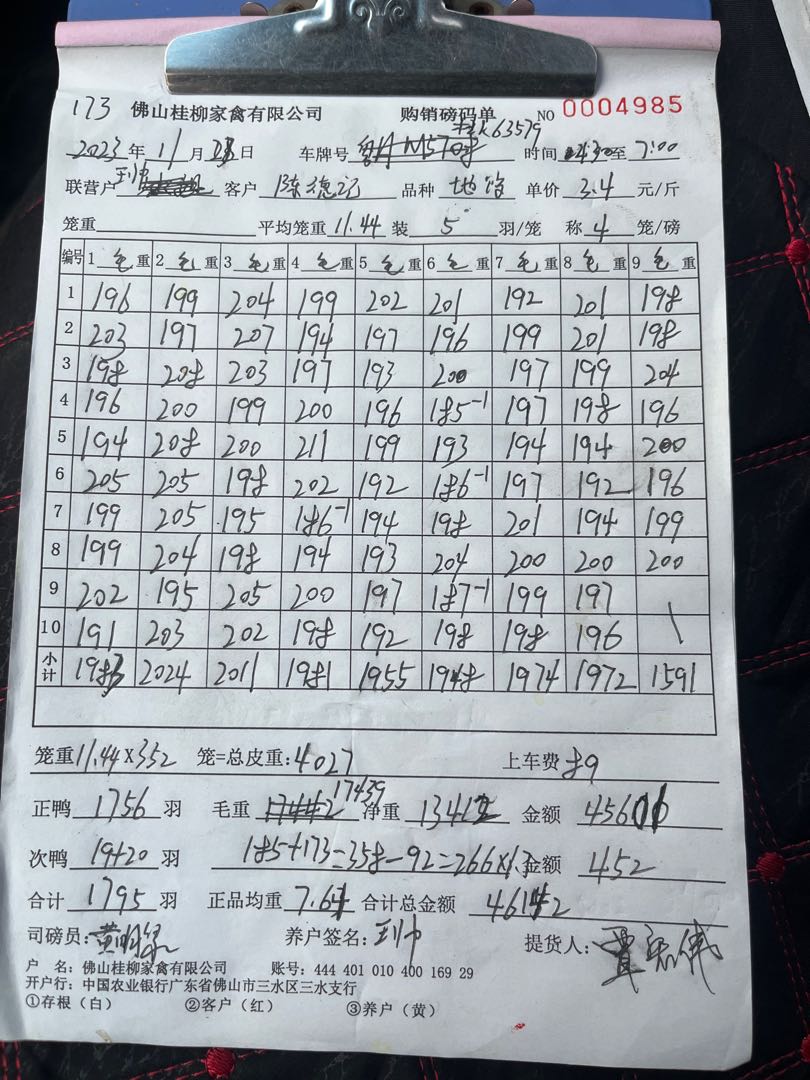 173 佛山桂柳家禽有限公司 购销磅码单 NO 0004985
K63579
2023 年 11 月 23 日 车牌号 时间 4:30 至 7:00
联营户 王帅 客户 陈德记 品种 单价 3.4 元/斤
笼重 平均笼重 11.44 装 5 羽/笼 称 4 笼/磅
编号 1 毛重 2 毛重 3 毛重 4 毛重 5 毛重 6 毛重 7 毛重 8 毛重 9 毛重
1 196 199 204 199 202 201 192 201 198
2 203 197 207 194 197 196 199 201 198
3 198 208 203 197 193 200 197 199 204
4 196 200 199 200 196 185-1 197 198 196
5 194 208 200 211 199 193 194 194 200
6 205 205 198 202 192 186-1 197 192 196
7 199 205 195 186-1 194 198 201 194 199
8 199 204 198 194 193 204 200 200 200
9 202 195 205 200 197 187-1 199 197 \
10 191 203 202 198 192 198 198 196
小计 1983 2024 2011 1981 1955 1948 1974 1972 1591
笼重 11.44×352 笼=总皮重: 4027 上车费 89
正鸭 1756 羽 毛重 17439 净重 13412 金额 45601
次鸭 19+20 羽 185+173=358-92=266×1.7 金额 452
合计 1795 羽 正品均重 7.64 合计总金额 46142
司磅员: 养户签名: 王帅 提货人:
户 名: 佛山桂柳家禽有限公司 账号: 444 401 010 400 169 29
开户行: 中国农业银行广东省佛山市三水区三水支行
①存根(白) ②客户(红) ③养户(黄)